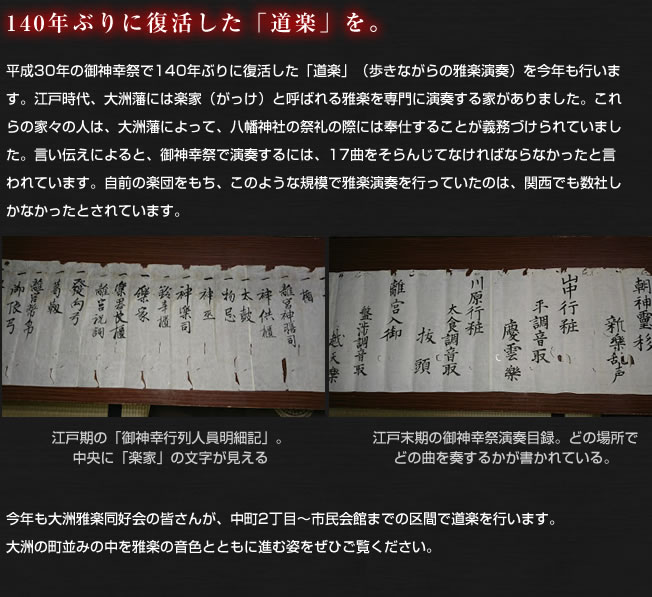 140年ぶりに復活した「道楽」を。
平成30年の御神幸祭で140年ぶりに復活した「道楽」（歩きながらの雅楽演奏）を今年も行いま
す。江戸時代、大洲藩には楽家（がっけ）と呼ばれる雅楽を専門に演奏する家がありました。これ
らの家々の人は、大洲藩によって、八幡神社の祭礼の際には奉仕することが義務づけられていまし
た。言い伝えによると、御神幸祭で演奏するには、17曲をそらんじてなければならなかったと言
われています。自前の楽団をもち、このような規模で雅楽演奏を行っていたのは、関西でも数社し
かなかったとされています。
離宮神膳司
神供櫃
太鼓
物忌
神巫
神楽司
鈴辛櫃
楽家
離宮祝詞
山中行粧
平調音取
慶雲楽
川原行粧
太食調音取
抜頭
離宮入御
盤渉調音取
越天楽
江戸期の「御神幸行列人員明細記」。
中央に「楽家」の文字が見える
江戸末期の御神幸祭演奏目録。どの場所で
どの曲を奏するかが書かれている。
今年も大洲雅楽同好会の皆さんが、中町2丁目～市民会館までの区間で道楽を行います。
大洲の町並みの中を雅楽の音色とともに進む姿をぜひご覧ください。